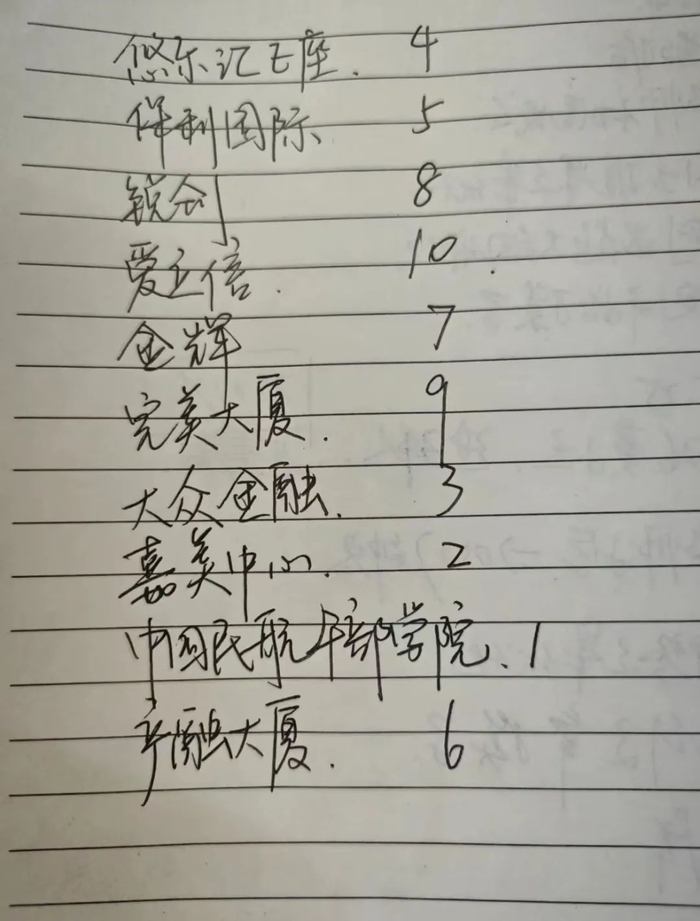 悠乐汇E座. 4
保利国际 5
锐创 8
爱立信. 10.
金辉 7
完美大厦. 9
大众金融. 3
嘉美中心. 2
中国民航干部学院. 1
融大厦. 6